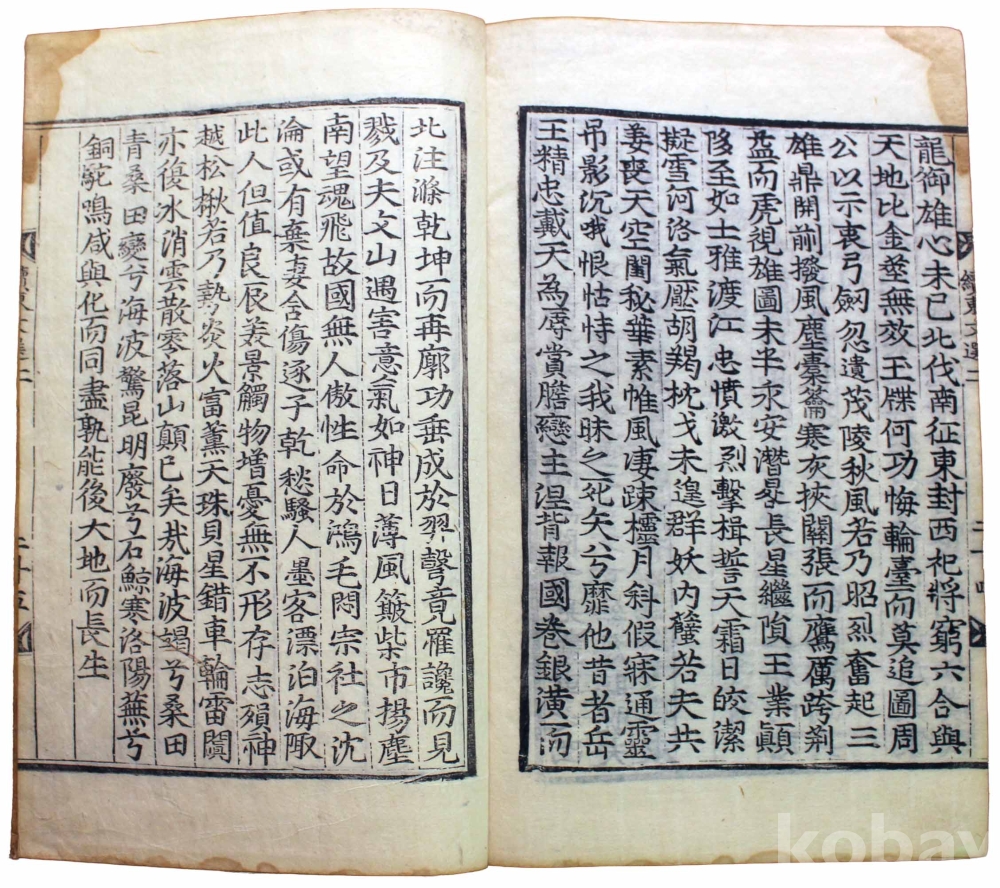 龍御雄心未已北伐南征東封西祀將窮六合與
天地比金莖無效玉牒何功悔輪臺而莫追圖周
公以示喪弓劒忽遺茂陵秋風若乃昭烈奮起三
雄鼎開前撥風塵橐籥寒灰挾關張而鷹厲跨荆
益而虎視雄圖未半永安潛晷長星繼隕王業顚
陊至如士雅渡江忠憤激烈擊楫誓天霜日皎潔
擬雪河洛氣壓胡羯枕戈未遑群妖内蠥若夫共
姜喪天空閨秘華素帷風凄踈櫺月斜假寐通靈
吊影沉哦恨怙恃之我昧之死矣兮靡他昔者岳
王精忠戴天為辱嘗膽戀主涅背報國卷銀潢而
續東文選二
二十四
北注滌乾坤而再廓功垂成於羿彀竟罹讒而見
戮及夫文山遇害意氣如神日薄風簸柴市揚塵
南望魂飛故國無人傲性命於鴻毛悶宗社之沈
淪或有棄妻含傷逐子乾愁騷人墨客漂泊海陬
此人但值良辰美景觸物增憂無不形存志殞神
越松楸若乃熱炎火富薰天珠貝星錯車輪雷闐
亦復冰消雲散零落山顛已矣哉海波竭兮桑田
青桑田變兮海波驚昆明廢兮石鯨寒洛陽蕪兮
銅駝鳴咸與化而同盡孰能後大地而長生
二十五
kobay